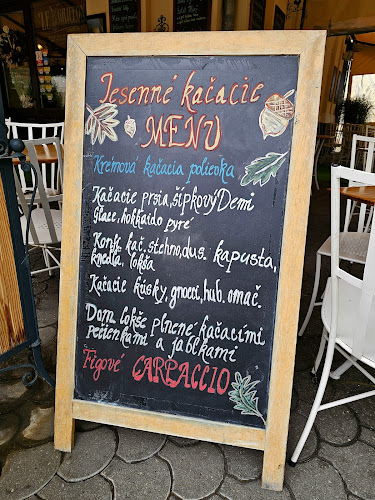 Jesenné kačacie
MENU
Krémová kačacia polievka
Kačacie prsia, šípkový Demi
Glace, hokkaido pyré
Konf. kač. stehno, dus. kapusta,
knedľa, lokša
Kačacie kúsky, gnocci, hub. omáč.
Dom. lokše plnené kačacími
pečienkami a jablkami
Figové CARPACCIO